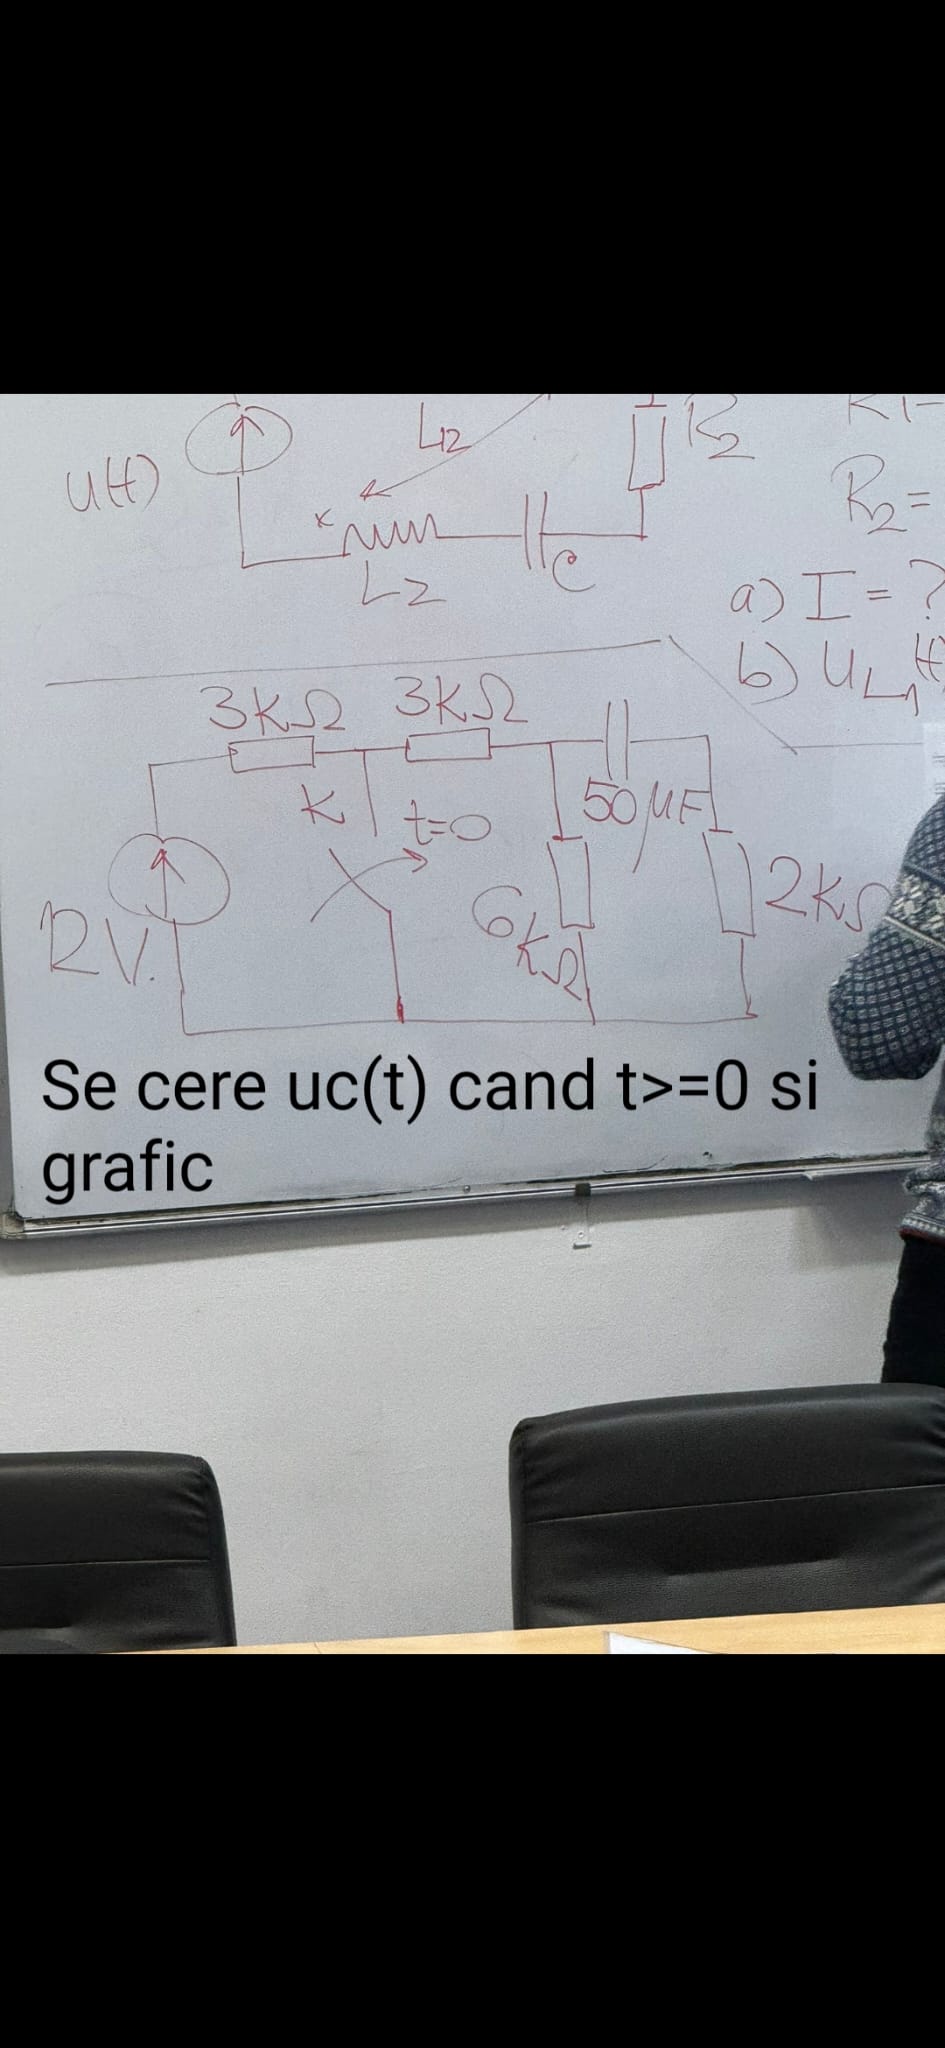 L12
R2
u(t)
R2=
L2
C
a) I=?
b) UL1(t
3KΩ 3KΩ
K t=0 50μF
12V. 6kΩ 2KΩ
Se cere uc(t) cand t>=0 si
grafic